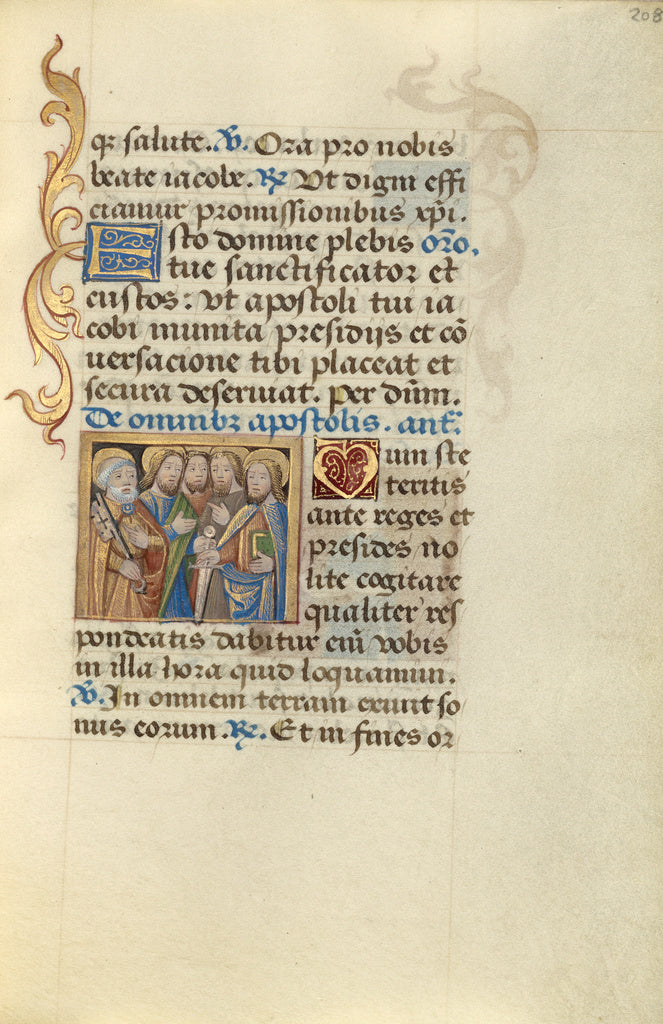 208
q̃ salute. V. Ora pro nobis
beate iacobe. R. Vt digni effi
ciamur promissionibus xpi.
Esto domine plebis oro.
tue sanctificator et
custos: vt apostoli tui ia
cobi munita presidijs et cō
uersacione tibi placeat et
secura deseruiat. per dūm.
De omnibz apostolis. ant̃.
Dum ste
teritis
ante reges et
presides no
lite cogitare
qualiter res
pondeatis dabitur eni vobis
in illa hora quid loquamini.
V. In omnem terram exiuit so
nus eorum. R. Et in fines or